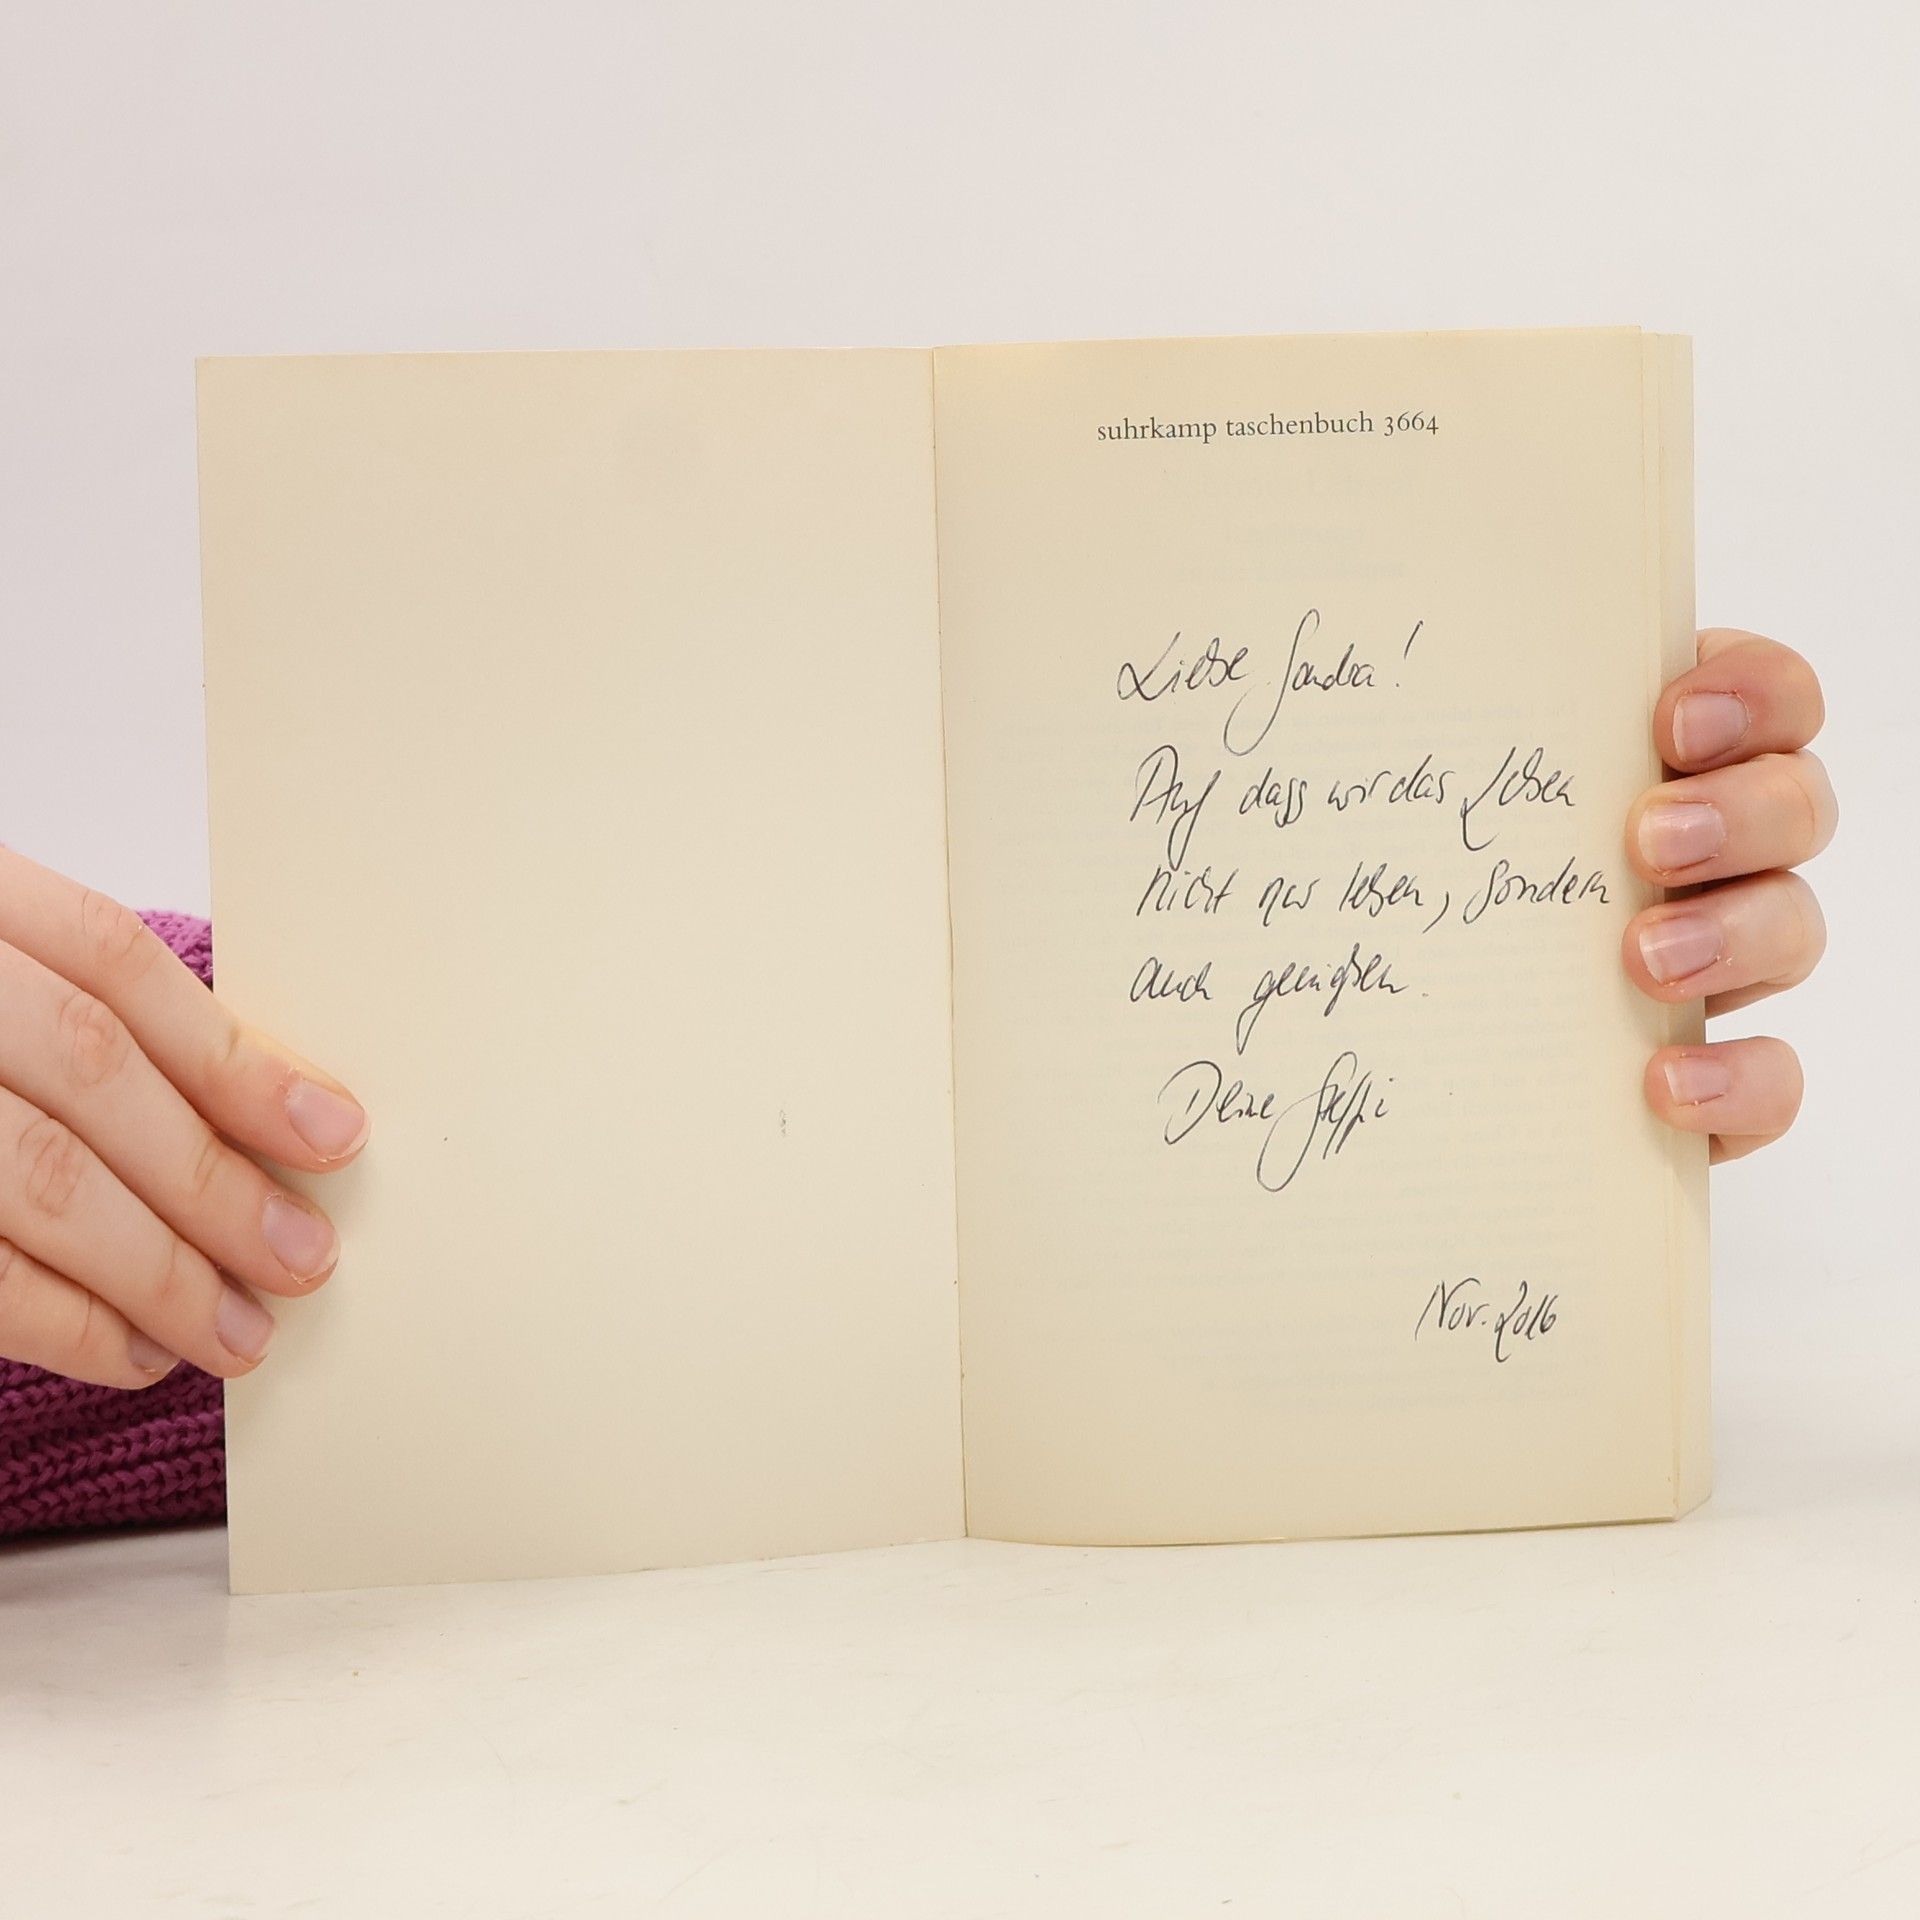 suhrkamp taschenbuch 3664
Liebe Sandra!
Auf dass wir das Leben
nicht nur leben, sondern
auch genießen.
Deine Steffi
Nov. 2016